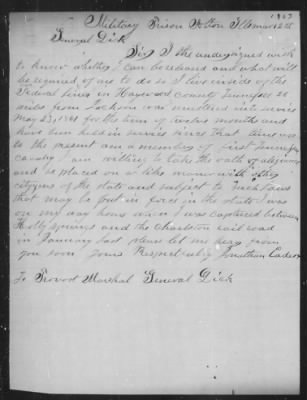 1863
Military Prison Alton Ills mar 12th
General Dick
Sir I the undersigned wish
to know whether I can be released and what will
be required of me to do so I live outside of the
Federal lines in Haywood County Tennessee 20
miles from Jackson was mustered into service
May 23, 1861 for the term of twelve months and
have been held in service since that time up
to the present am a member of first Tennessee
cavalry am willing to take the oath of allegiance
and be placed on a like manner with other
citizens of the state and subject to such laws
that may be put in force in the state I was
on my way home when I was captured between
Holly springs and the Charleston rail road
in January last please let me hear from
you soon yours Respectfully Jonathan
To Provost Marshal General Dick